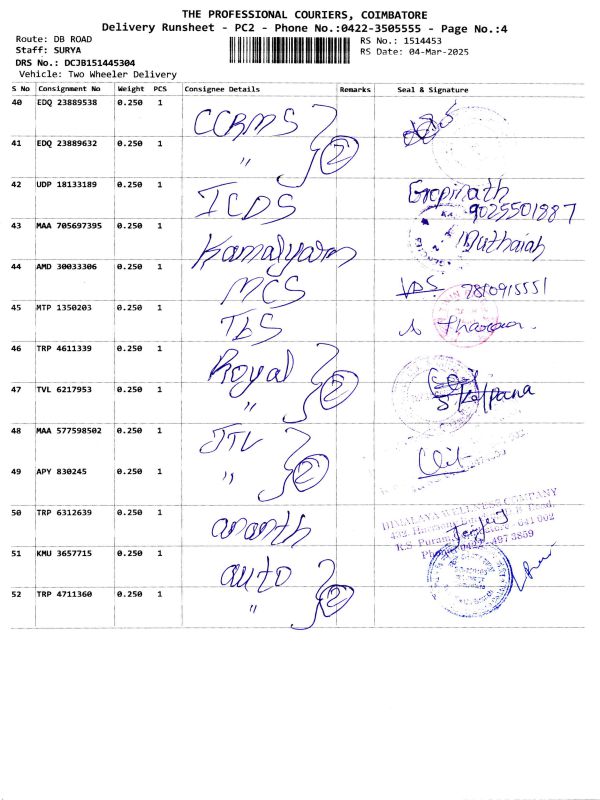 THE PROFESSIONAL COURIERS, COIMBATORE
Delivery Runsheet - PC2 - Phone No.:0422-3505555 - Page No.:4
Route: DB ROAD
RS No.: 1514453
Staff: SURYA
RS Date: 04-Mar-2025
DRS No.: DCJB151445304
Vehicle: Two Wheeler Delivery
S No Consignment No Weight PCS Consignee Details Remarks Seal & Signature
40 EDQ 23889538 0.250 1 CCRMS
41 EDQ 23889632 0.250 1 " 2
42 UDP 18133189 0.250 1 ICDS Gopinath
9025501887
43 MAA 705697395 0.250 1 Kamalyarn Muthaiah
44 AMD 30033306 0.250 1 MCS 7810915551
45 MTP 1350203 0.250 1 TBS
46 TRP 4611339 0.250 1 Royal
47 TVL 6217953 0.250 1 " 2 S Kalpana
48 MAA 577598502 0.250 1 JTL
49 APY 830245 0.250 1 " 2
50 TRP 6312639 0.250 1 ananth
HIMALAYA WELLNESS COMPANY
R.S Puram, 641 002
51 KMU 3657715 0.250 1 auto
52 TRP 4711360 0.250 1 " 2